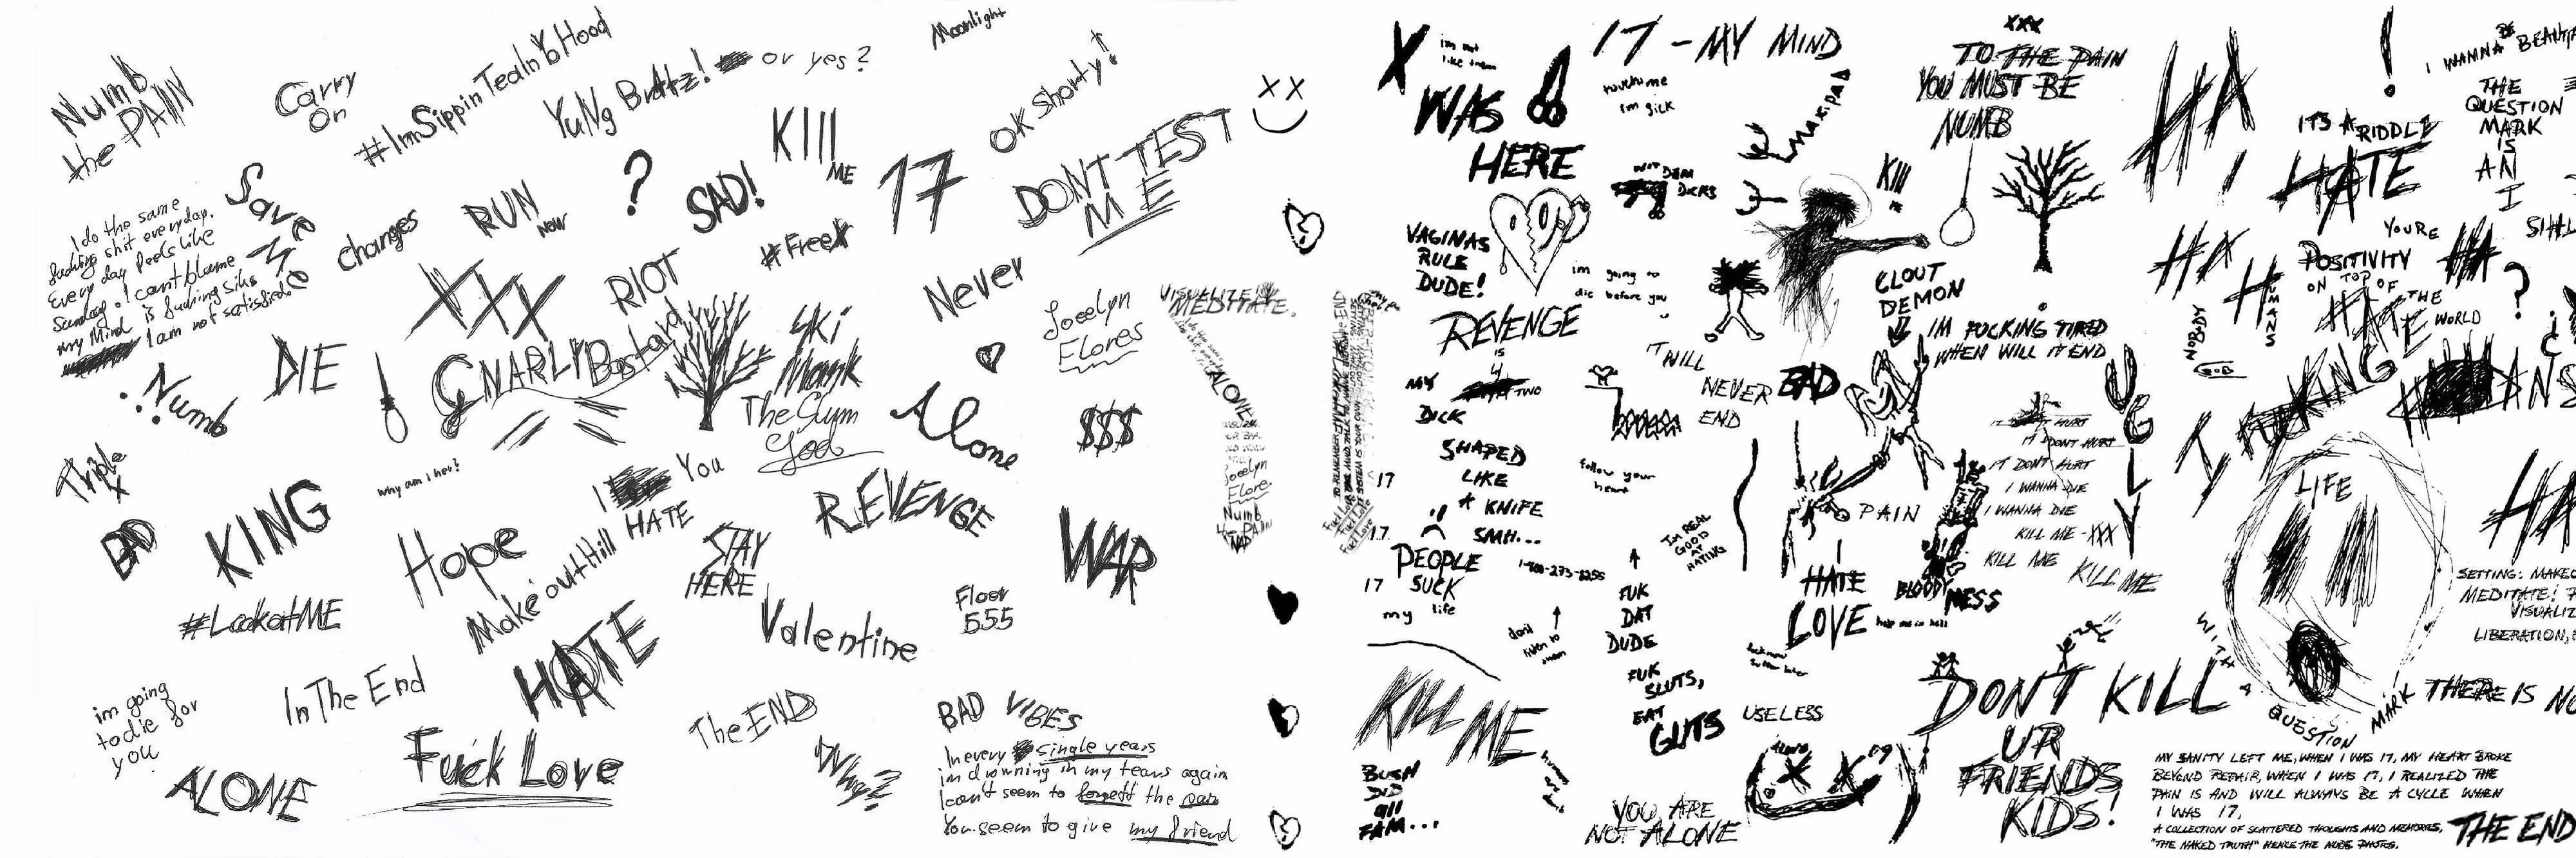 Numb
the PAIN
Carry
On
#ImSippinTeaInYbHood
YuNg Bratz! or yes?
Moonlight
OK Shorty!
KIll
ME
17
DONT TEST
ME
I do the same
fucking shit everyday.
Every day feels like
Sunday. I cant blame
my Mind is fucking
I am not satisfied.
Save
Me
changes
RUN
NOW
?
SAD!
#FreeX
XXX
RIOT
Never
Jocelyn
Flores
DIE
GNARLY Bastard
Ski
Mask
The Slum
God
Numb
Alone
$$$
Triple
X
why am i her?
I HATE You
BAD
KING
Hope
Make out Hill
STAY
HERE
REVENGE
WAR
#LookatME
HATE
Valentine
Floor
555
im going
to die for
you
In The End
The END
Why?
ALONE
Fuck Love
BAD VIBES
In every single years
im drowning in my tears again
I can't seem to forgett the pain
You seem to give my friend
VISUALIZE
MEDITATE.
ALONE
Jocelyn
Flore.
Numb
X
im not
like them
WAS
HERE
17 - MY MIND
im sick
MAXIPAD
XXX
TO THE PAIN
YOU MUST BE
NUMB
KIll
me
NOT DEM
DICKS
VAGINAS
RULE
DUDE!
im going to
die before you
REVENGE
IS
MY TWO
DICK
SHAPED
LIKE
A KNIFE
SMH...
CLOUT
DEMON
IM FUCKING TIRED
WHEN WILL IT END
IT WILL
NEVER
END
BAD
follow your
heart
17
17
PEOPLE
SUCK
17
my life
1-800-273-8255
IM REAL
GOOD
AT
HATING
PAIN
I
HATE
LOVE
BLOODY
MESS
IT DONT HURT
IT DONT HURT
I WANNA DIE
I WANNA DIE
KILL ME -XXX
KILL ME
KILL ME
UGLY
dont
listen to
them
FUK
DAT
DUDE
FUK
SLUTS,
EAT
GUTS
USELESS
KILL ME
BUSH
DID
all
FAM...
YOU ARE
NOT ALONE
DON'T KILL
UR
FRIENDS
KIDS!
HA
!
I WANNA BE
THE
QUESTION
MARK
IS
AN
I
ITS A RIDDLE
I HATE
HA
HUMANS
YOURE
POSITIVITY
ON TOP OF
HATE THE
WORLD
HA
?
NOBODY
I FUCKING
LIFE
HA
WITH A QUESTION MARK
MEDITATE!
LIBERATION,
THERE IS
MY SANITY LEFT ME, WHEN I WAS 17, MY HEART BROKE
BEYOND REPAIR, WHEN I WAS 17, I REALIZED THE
PAIN IS AND WILL ALWAYS BE A CYCLE WHEN
I WAS 17,
A COLLECTION OF SCATTERED THOUGHTS AND MEMORIES,
"THE NAKED TRUTH" HENCE THE NUDE PHOTOS.
THE END